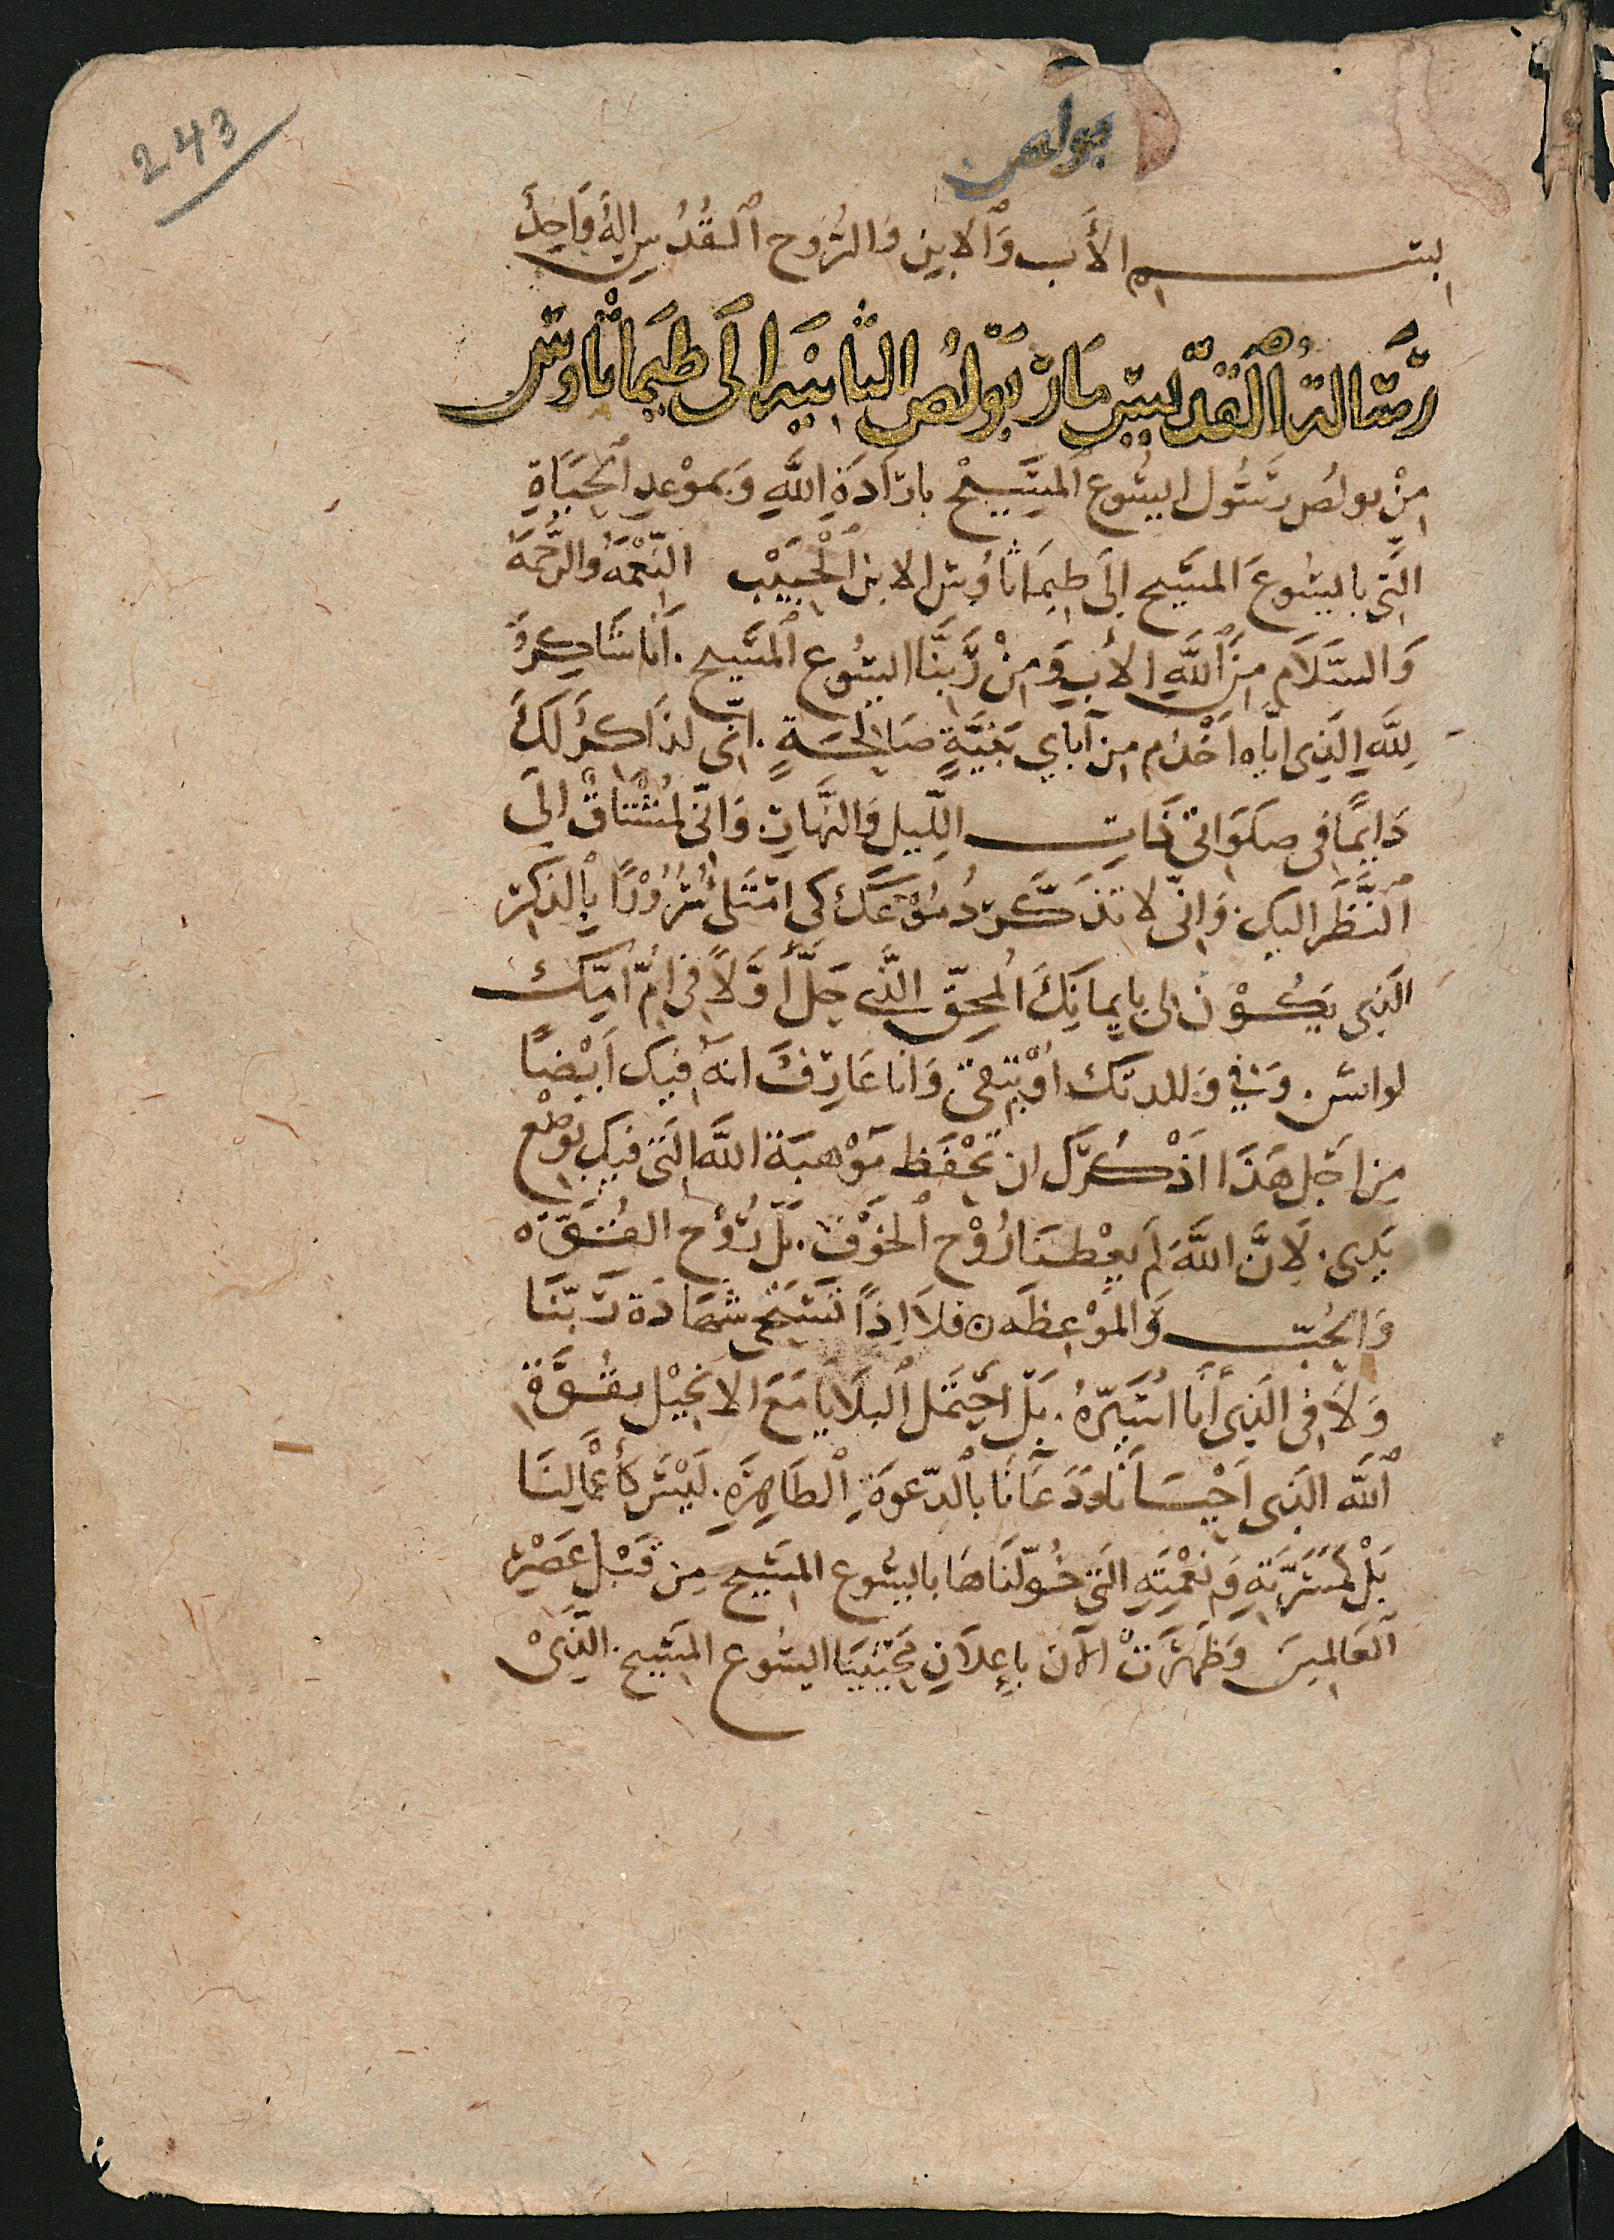 243
بولص
بسم الأَب وَٱلابن وَالرُّوح ٱلقُدُس اِلهٌ وَاحِدٌ
رسَالة القدّيس مَار بُوْلُص الثانيَه الَى طيمَاثَاوس
مِنْ بولُص رسُول ايسُوع المسِيحْ بارَادَةِ اللَّهِ وَبمَوْعدِ ٱلحَيَاةِ
الَتي بايسُوعَ المسَيح اِلَى طِيمَاثاوُس الابن ٱلْحَبَيْب النِعْمَهُ والرَّحْمَهُ
وَالسَّلَام مِنَ ٱللَّهِ الأَبِ وَمِنْ رَّبنَّا ايسُوع ٱلمسَيح. اَنَا شَاكِرٌ
لِلَّهِ الَذِى ايّاه اَخْدُم مِن آباي بَنيَّةٍ صَالِحَةٍ. انّى لذَاكرٌ لَكَ
دَايمًا في صلَوَاتي ذَات الليل وَالنَّهار. وَانّي لمُشْتاقْ اِلَى
ٱلنَّظَر اليك. وَانّى لاتذَكَّر دُمُوْعَكَ كى امْتَلى سُرُوْرًا بِالذكر
الَذِى يَكُوْن لى بايمانِكَ المحِقّ الذَّى حَلّ أَوَّلاً في اُمّ اُمّك
لواس. وَفي وَللدتك اوُنيقى وَانا عَارفٌ انهَّ فيك اَيْضًا
مِن اَجل هَذَا اذْكُرّكَ ان تحْفَظ مَوْهبَة اللَّه الَتى فيك بوَضْع
يَدِى. لَانَّ اللَّهَ لَم يعْطنَا رُوْح ٱلخَوْف. بَلّ رُوْح القُوَّه
وَالحُبّ وَالمَوْعظَه ن فلاَ اِذًا تَسْتَحى شهَادَة رَبّنَا
وَلاَ في الَذِى أَنَا اسَيْرهُ. بَلّ احْتمَل ٱلبلَايَا مَعَ الانجيْل بقُوَّة
ٱللَّه الَذِى اَحْيَانَا وَدَعَانَا بالدّعوَةِ ٱلطَاهِرَةِ. لَيْسَ كأَعْمَالنَا
بَلْ كمَسَرَّتِهِ وَنعْمِتَهِ الَتى خُوّلنَاهَا بايسُوع المسَيح مِن قَبْل عَصْر
ٱلعَالمينَ وَظَهَرَتْ الآن باِعلَانِ مُحْيينَا ايسُوع المسَيح. الَّذِىْ